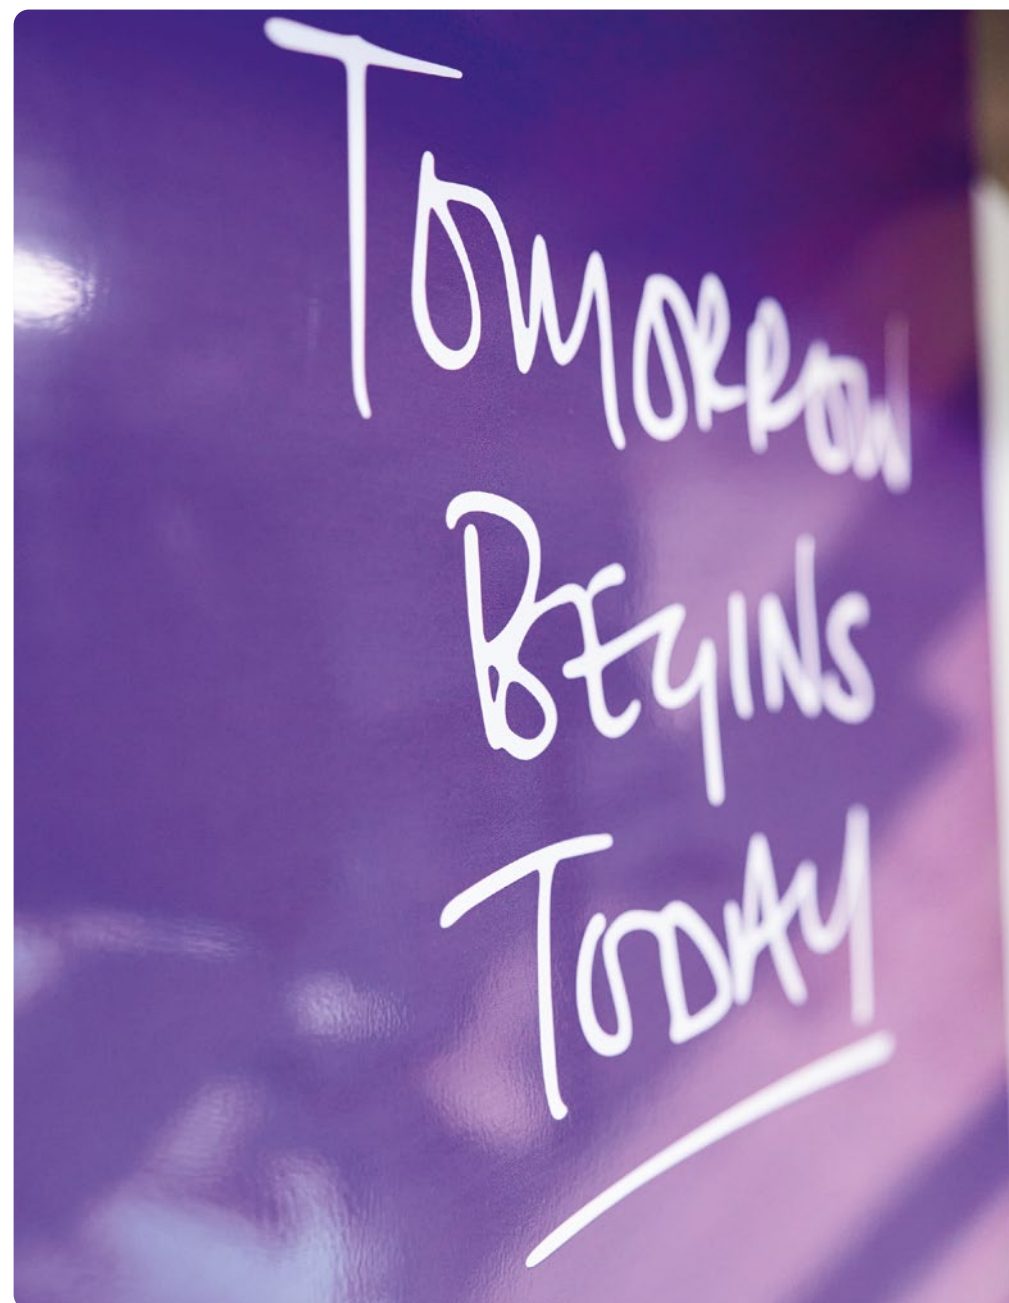 Tomorrow
Begins
Today